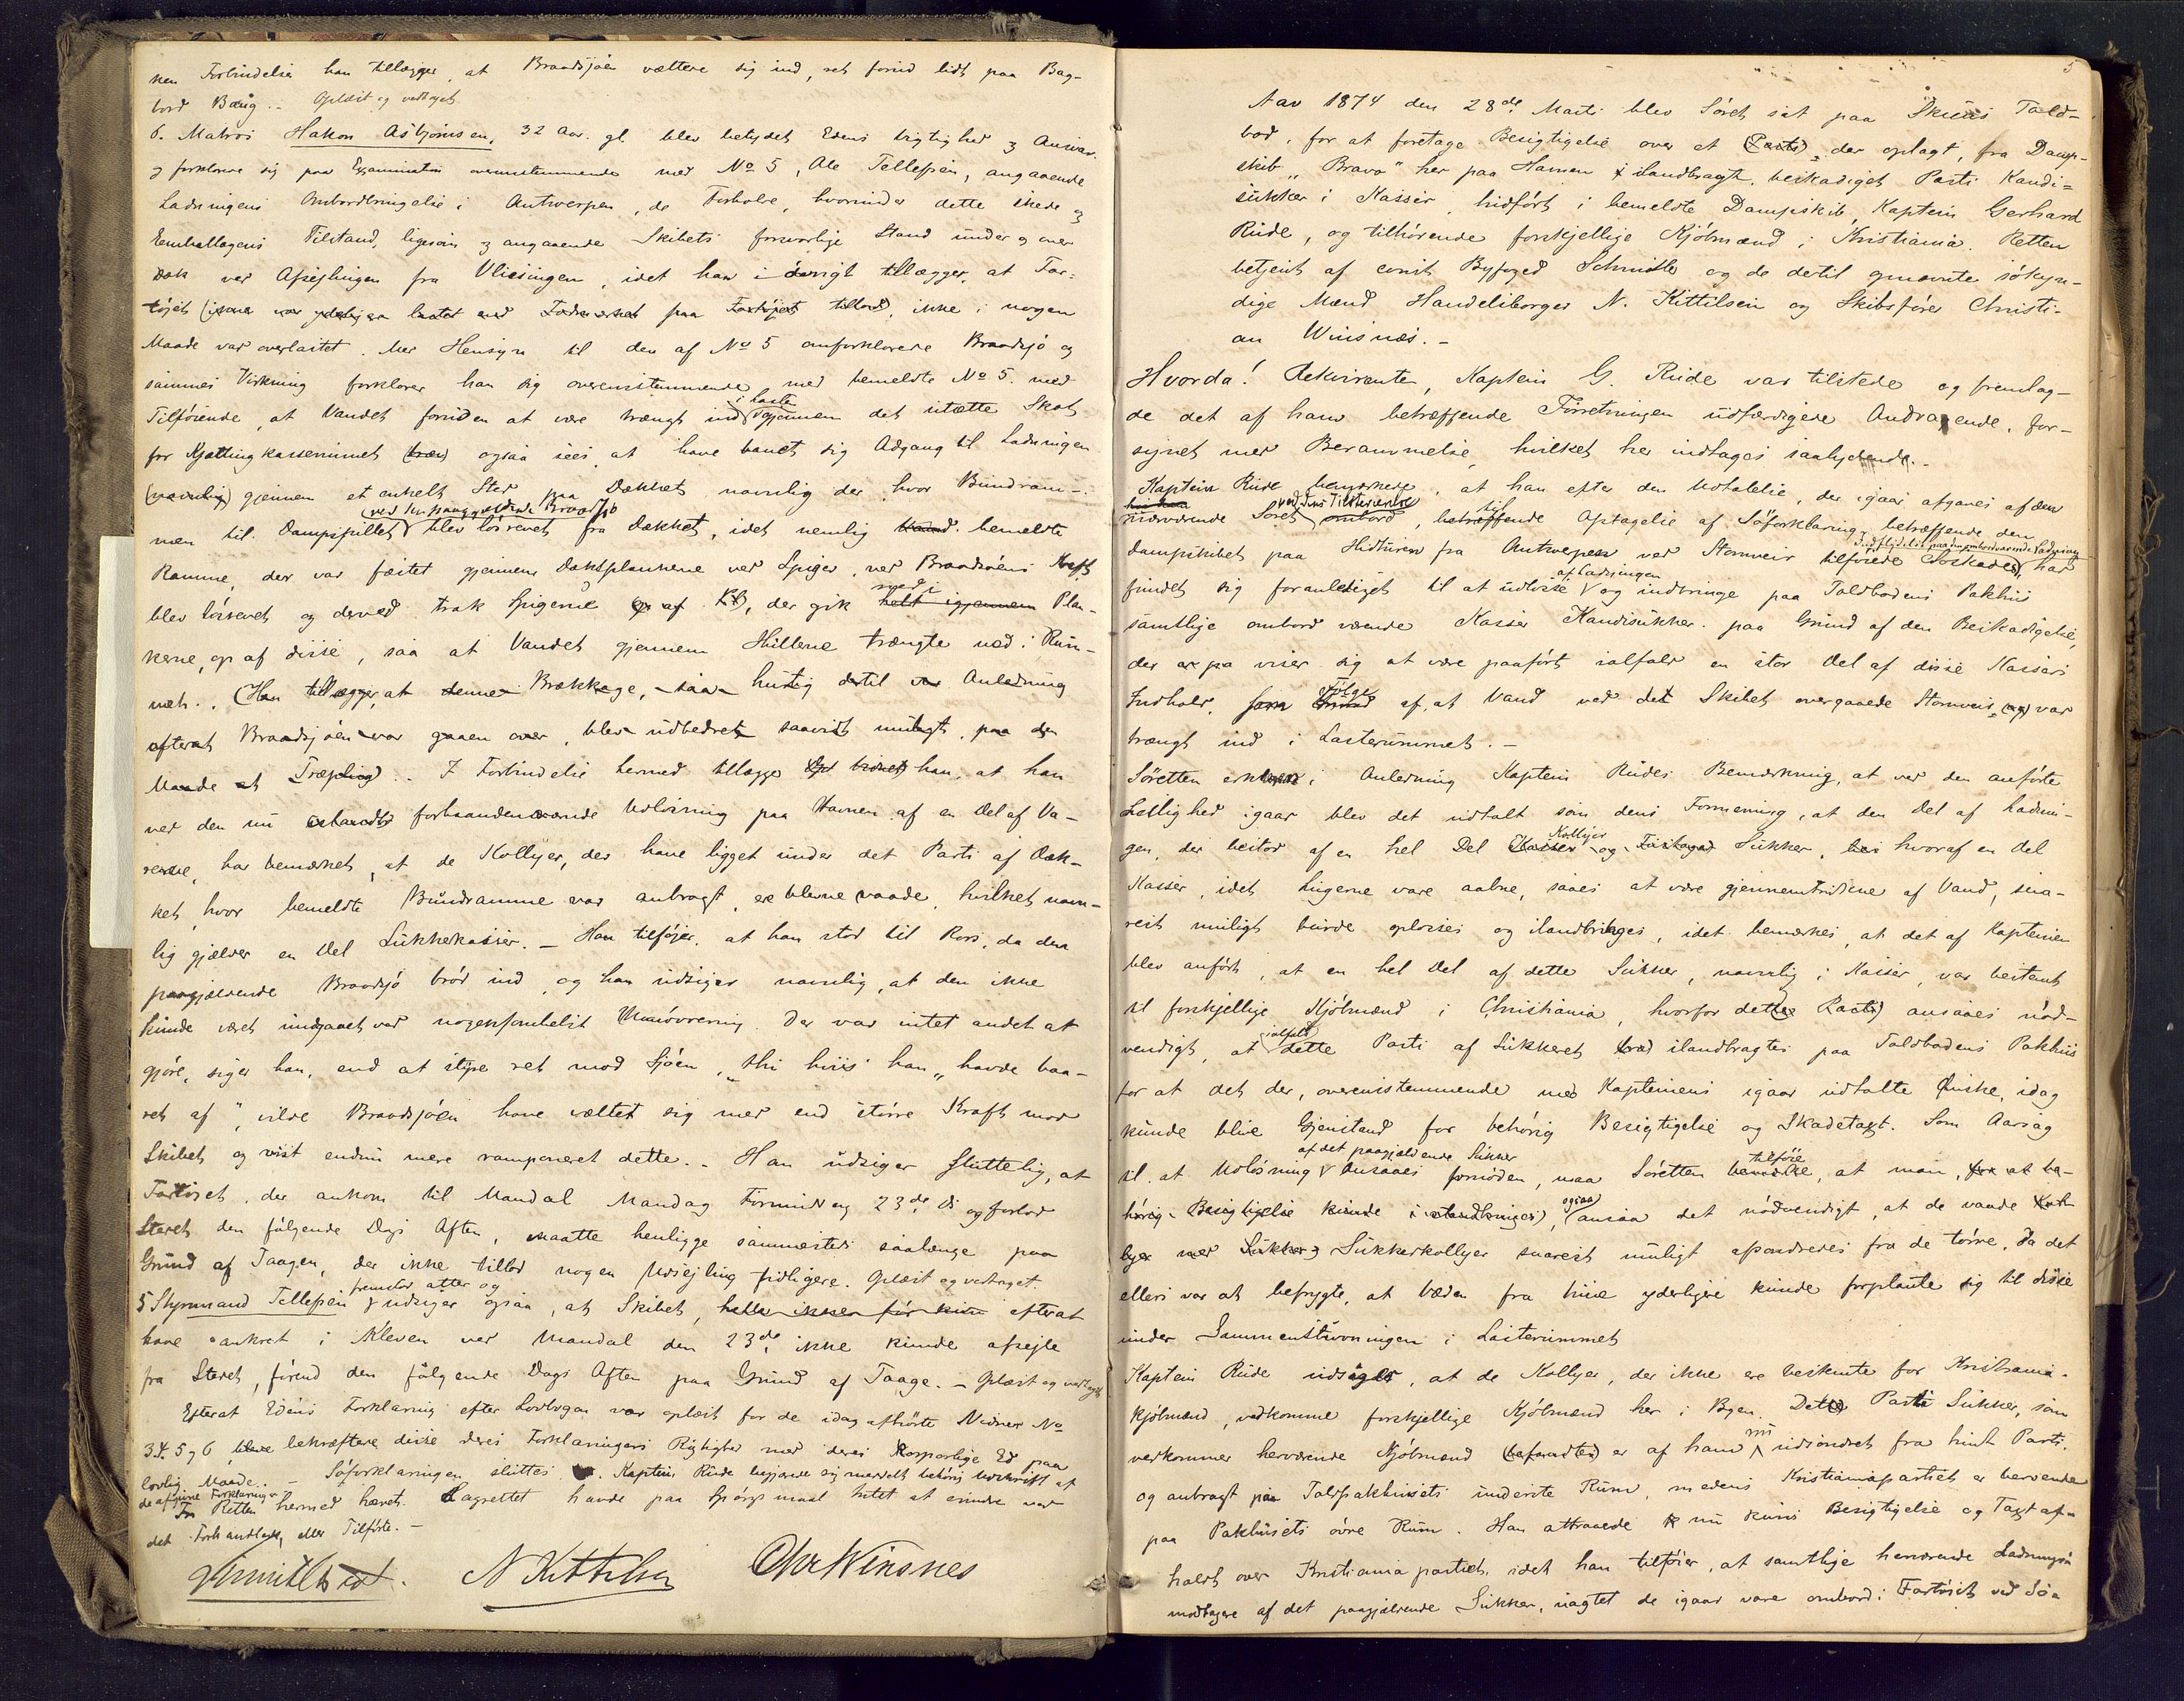 nen Forbindelse han tillægger, at Braadsjøen væltede sig ind, ret forind lidt paa Bag-
bord Boug. – Oplæst og vedtaget.
6. Matros Hakon Asbjørnsen, 32 Aar gl. blev betydet Edens Vigtighed og Ansvar
og forklarede sig paa Examination overensstemmende med No 5, Ole Tellefsen, angaaende
Ladningens Ombordbringelse i Antwerpen, de Forholde, hvorunder dette skede og
Emballagens Tilstand, ligesom og angaaende Skibets forsvarlige Stand under og over
Dæk ved Afsejlingen fra Vlissingen, idet han i øvrigt tillægger, at Far-
tøjet ikke i nogen
Maade var overlastet. Med Hensyn til den af No 5 omforklarede Braadsjø og
sammes Virkning forklarer han sig overensstemmende med bemeldte No 5. med
Tilføiende, at Vandet foruden at være trængt ind i Lasten gjennem det utætte Skot
for Kjættingkasserummet ogsaa sees at have banet sig Adgang til Ladningen
(navnlig) gjennem et enkelt Sted paa Dækket navnlig der, hvor Bundram-
ved den paagjældende Braadsjø
men til Dampspillet blev løsrevet fra Dækket, idet nemlig bemeldte
Ramme, der var fæstet gjennem Dæksplankerne ved Spiger, ved Braadsøens Kraft
blev løsrevet og derved trak Spigerne op af, der gik ned i Plan-
kerne, op af disse, saa at Vandet gjennem Hullerne trængte ned i Rum-
met. (Han tillægger, at denne Brækkage, saa hurtig dertil var Anledning
efterat Braadsjøen var gaaen over, blev udbedret saavidt muligt, paa den
Maade at Træplug. I Forbindelse hermed tillægger han, at han
ved den nu forhaandenværende Udlosning paa Havnen af en Del af Va-
rerne, har bemærket, at de Kollyer, der have ligget under det Parti af Dæk-
ket, hvor bemeldte Bundramme var anbragt, ere blevne vaade, hvilket navn-
lig gjælder en Del Sukkerkasser. – Han tilføjer, at han stod til Rors, da den
paagjældende Braadsjø brød ind og han udsiger navnlig, at den ikke
kunde været undgaaet ved nogensomhelst Manøvrering. Der var intet andet at
gjøre, siger han, end at styre ret mod Sjøen, „thi hvis han „havde baa-
ret af“, vilde Braadsjøen have væltet sig med end større Kraft mod
Skibet og vist endnu mere ramponeret dette. – Han udsiger sluttelig, at
Fartøiet, der ankom til Mandal Mandag Formiddag 23de ds og forlod
Stedet den følgende Dags Aften, maatte henligge sammesteds saalænge paa
Grund af Taagen, der ikke tillod nogen Udsejling tidligere. Oplæst og vedtaget.
fremstod atter og
5 Styrmand Tellefsen udsiger ogsaa, at Skibet, efterat
have ankret i Kleven ved Mandal den 23de, ikke kunde afsejle
fra Stedet, førend den følgende Dags Aften paa Grund af Taage. – Oplæst og vedtaget
Efterat Edens Forklaring efter Lovbogen var oplæst for de idag afhørte Vidner No
3.4. 5 og 6, bekræftede disse deres Forklaringers Rigtighed med deres korporlige Ed paa
lovlig Maade. – Søforklaringen sluttes. Kaptein Rude begjærede sig meddelt behørig Udskrift af
de afgivne Forklaringer
Retten hermed hævet. Lagrettet havde paa Spørgsmaal Intet at erindre ved
det Forhandlede, eller Tilførte. –
Schmidth cst. N Kittilsen Chr Winsnes
5
Aar 1874 den 28de Marts blev Søret sat paa Skiens Told-
bod, for at foretage Besigtigelse over et (Parti) der oplagt, fra Damp-
skib „Bravo“ her paa Havnen ilandbragt, beskadiget Parti Kandi-
sukker i Kasser, hidført i bemeldte Dampskib, Kaptein Gerhard
Rude, og tilhørende forskjellige Kjøbmænd i Kristiania. Retten
betjent af const. Byfoged Schmidth og de dertil opnævnte søkyn-
dige Mænd Handelsborger N. Kittilsen og Skibsfører Christi-
an Winsnæs. –
Hvorda! Rekvirenten, Kaptein G. Rude var tilstede og fremlag-
de det af ham betræffende Forretningen udfærdigede Andragende, for-
synet med Berammelse, hvilket her indtages saalydende. –
Kaptein Rude bemærkede, at han efter den Udtalelse, der igaar afgaves af den
ved dens Tilstedeværelse
nærværende Søret ombord, betræffende Optagelse af Søforklaring betræffende den
Indflydelse paa den ombordværende Ladning
Dampskibet paa Hidturen fra Antwerpen ved Stormveir tilføiede Søskade, har
af Ladningen
fundet sig foranlediget til at udlosse og indbringe paa Toldbodens Pakhus
samtlige ombord værende Kasser Kandisukker paa Grund af den Beskadigelse,
der viser sig at være paaført ialfald en stor Del af disse Kassers
Følge
Indhold, som af, at Vand ved det Skibet overgaaede Stormveir var
trængt ind i Lasterummet. –
Søretten erklærer i Anledning Kaptein Rudes Bemærkning, at ved den anførte
Leilighed igaar blev det udtalt som dens Formening, at den Del af Ladnin-
Kollyer
gen, der bestod af en hel Del og Fustager Sukker, hvoraf en Del
Kasser, idet Lugerne vare aabne, saaes at være gjennemtrukne af Vand, sna-
rest muligt burde oplosses og ilandbringes, idet bemærkes, at det af Kapteinen
blev anført, at en hel Del af dette Sukker, navnlig i Kasser, var bestemt
til forskjellige Kjøbmænd i Christiania, hvorfor dette (Parti) ansaaes nød-
ialfald
vendigt, at dette Parti af Sukkeret ilandbragtes paa Toldbodens Pakhus
for at det der, overensstemmende med Kapteinens igaar udtalte Ønske, idag
kunde blive Gjenstand for behørig Besigtigelse og Skadetaxt. Som Aarsag
af det paagjældende Sukker
til at Udlosning ansaaes fornøden, maa Søretten tilføie, at man, for at be-
hørig Besigtigelse kunde, ogsaa ansaa det nødvendigt, at de vaade Kol-
lyer med Sukkerkollyer snarest muligt afsondredes fra de tørre, da det
ellers var at befrygte, at Væden fra hine yderligere kunde forplante sig til disse
under Sammenstuvningen i Lasterummet
Kaptein Rude udsiger, at de Kollyer, der ikke ere bestemte for Kristiania-
kjøbmænd, vedkomme forskjellige Kjøbmænd her i Byen. Dette Parti Sukker, som
vedkommer herværende Kjøbmænd er af ham nu udsondret fra hint Parti.
og anbragt paa Toldpakhusets underste Rum, medens Kristianiapartiet er beroende
paa Pakhusets øvre Rum. Han attraaede nu kuns Besigtigelse og Taxt af-
holdt over Kristianiapartiet, idet han tilføier, at samtlige herværende Ladnings-
modtagere af det paagjældende Sukker, uagtet de igaar vare ombord i Fartøiet ved Sø-